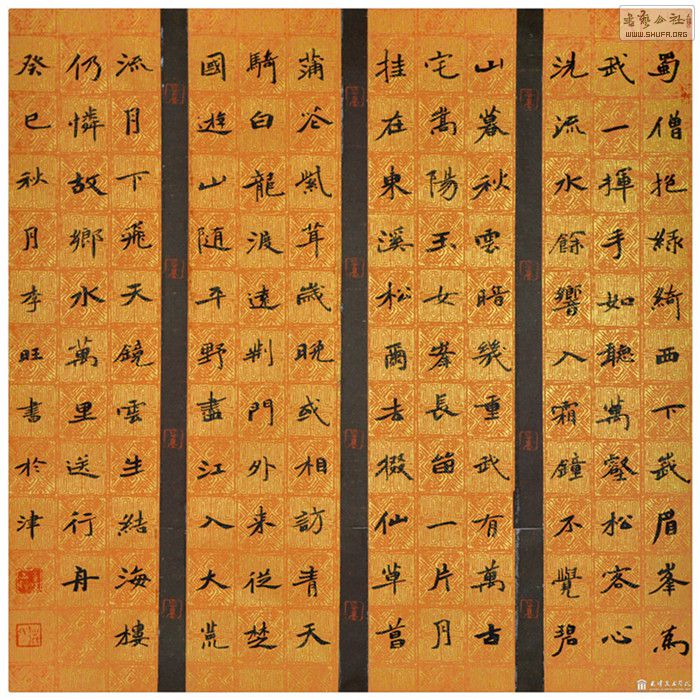 蜀僧抱綠綺西下峩眉峯為
我一揮手如聽萬壑松客心
洗流水餘響入霜鐘不覺碧
山暮秋雲暗幾重我有萬古
宅嵩陽玉女峯長留一片月
挂在東溪松爾去掇仙草菖
蒲花紫茸歲晚或相訪青天
騎白龍渡遠荊門外來從楚
國遊山隨平野盡江入大荒
流月下飛天鏡雲生結海樓
仍憐故鄉水萬里送行舟
癸巳秋月李旺書於津
書藝公社
WWW.SHUFA.ORG